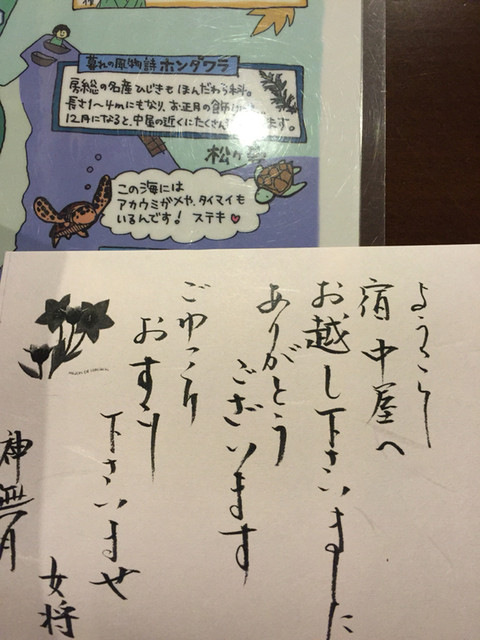 暮れの風物詩 ホンダワラ
房総の名産ひじきもほんだわら科。
長さ1〜4mにもなり、お正月の飾り
12月になると、中屋の近くにたくさん ます。
この海には
アカウミガメや、タイマイも
いるんです! ステキ♥
ようこそ
宿中屋へ
お越し下さいました
ありがとう
ございます
ごゆっくり
おすごし
下さいませ
神無月
女将